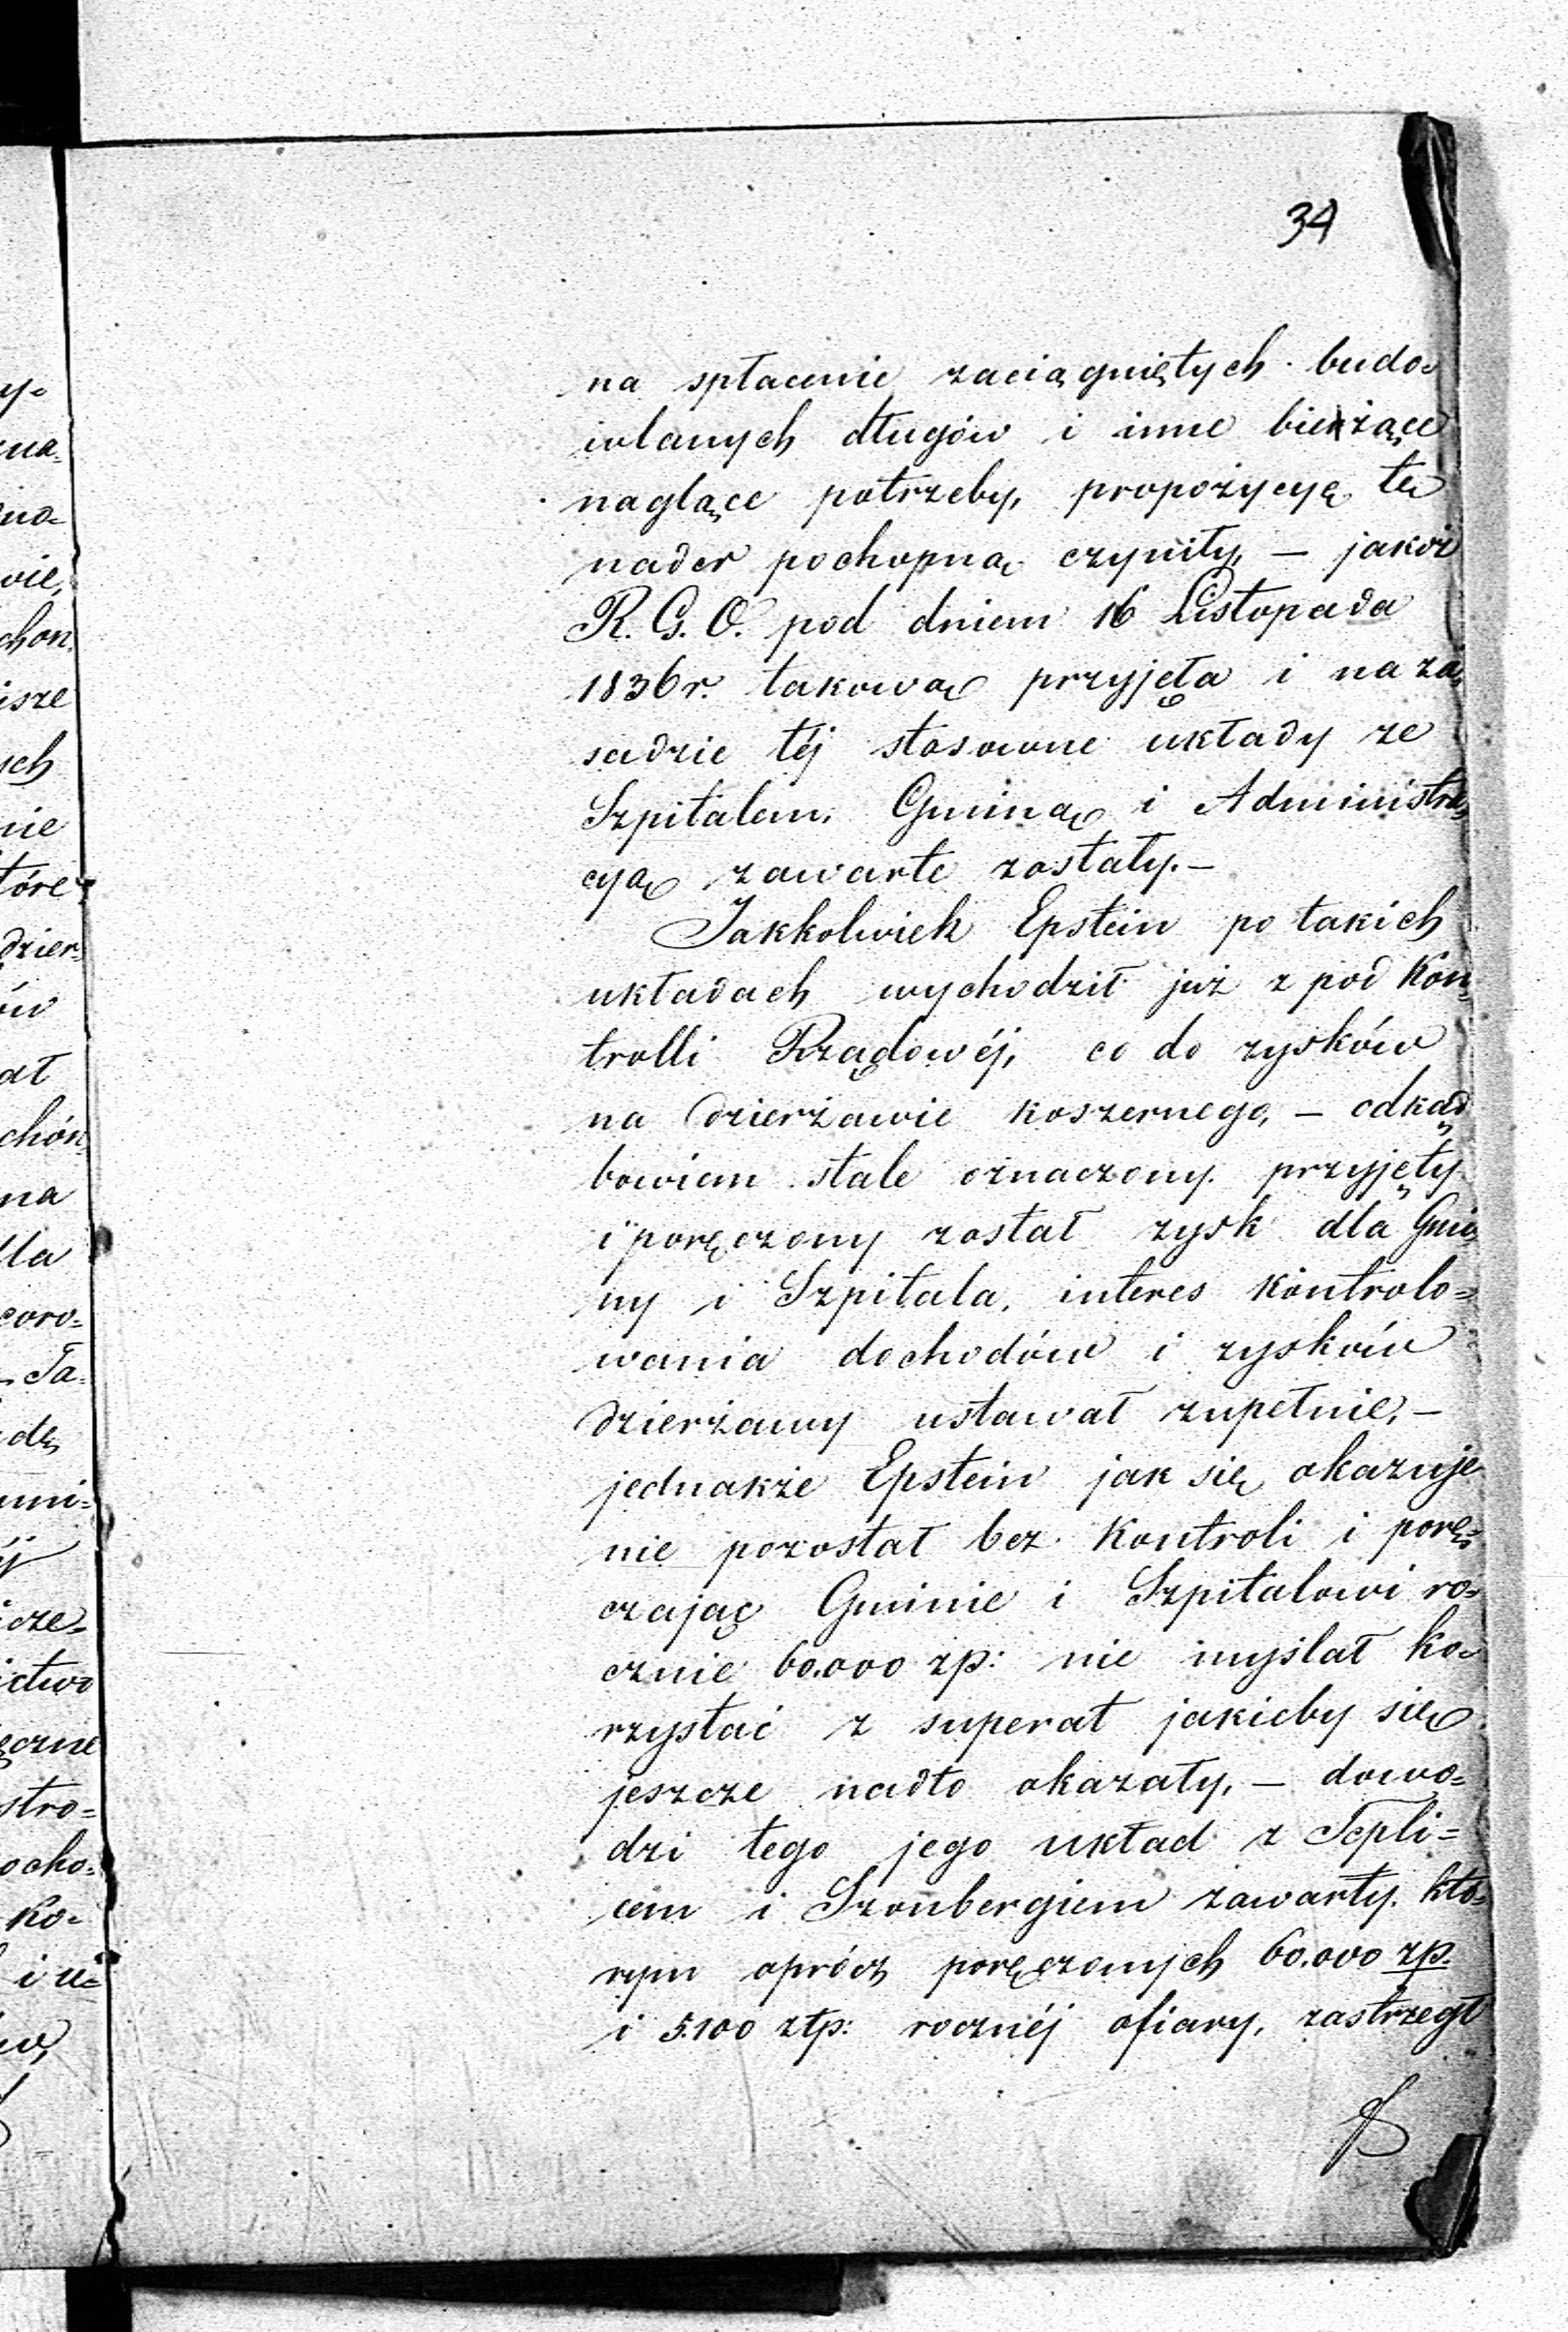 34
na spłacenie zaciągniętych budo-
wlanych długów i inne bieżące
naglące potrzeby, propozycyę tę
nader pochopną czyniły, — jakoż
R. G. O. pod dniem 16 Listopada
1836 r. takową przyjęła i na za-
sadzie téj stosowne układy ze
Szpitalem, Gminą i Administra-
cyą zawarte zostały. —
Jakkolwiek Epstein po takich
układach wychodził już z pod Kon-
trolli Rządowéj, co do zysków
na dzierżawie koszernego, — odkąd
bowiem stale oznaczony, przyjęty
i poręczony został zysk dla Gmi-
ny i Szpitala, interes kontrolo-
wania dochodów i zysków
dzierżawy ustawał zupełnie, —
jednakże Epstein jak się okazuje
nie pozostał bez Kontroli i porę-
czając Gminie i Szpitalowi ro-
cznie 60.000 zp: nie myślał ko-
rzystać z superat jakieby się
jeszcze nadto okazały, — dowo-
dzi tego jego układ z Tepli-
cem i Szonbergiem zawarty, któ-
rym oprócz poręczonych 60.000 zp.
i 5.100 złp: rocznéj ofiary, zastrzegł
y-
wie,
chon.
isze
ych
nie
tóre
dzier-
ów
ał
chón
na
dla
coro-
Ta-
dę
icze-
ictwo
stro-
ocho-
ko-
i u-